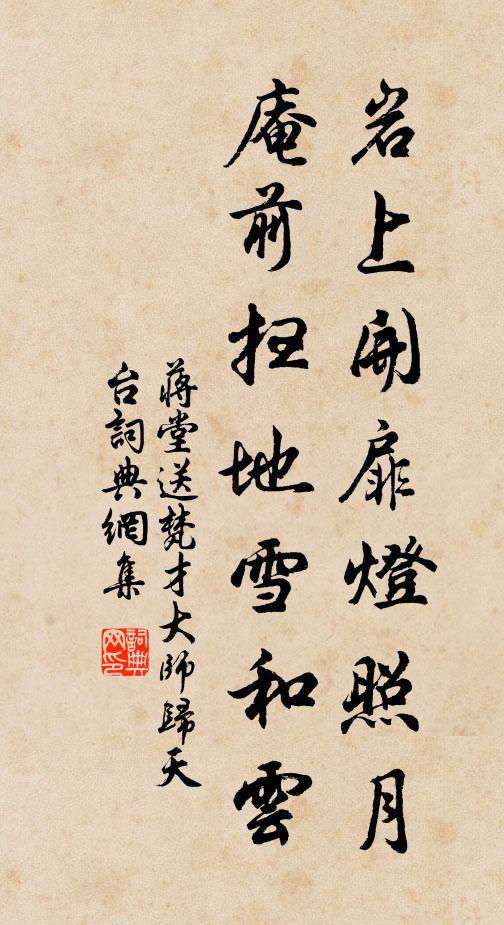 岩上開扉燈照月
庵前扫地雪和雲
蔣堂送梵才大師歸天
台詞典網集
詞典
网印